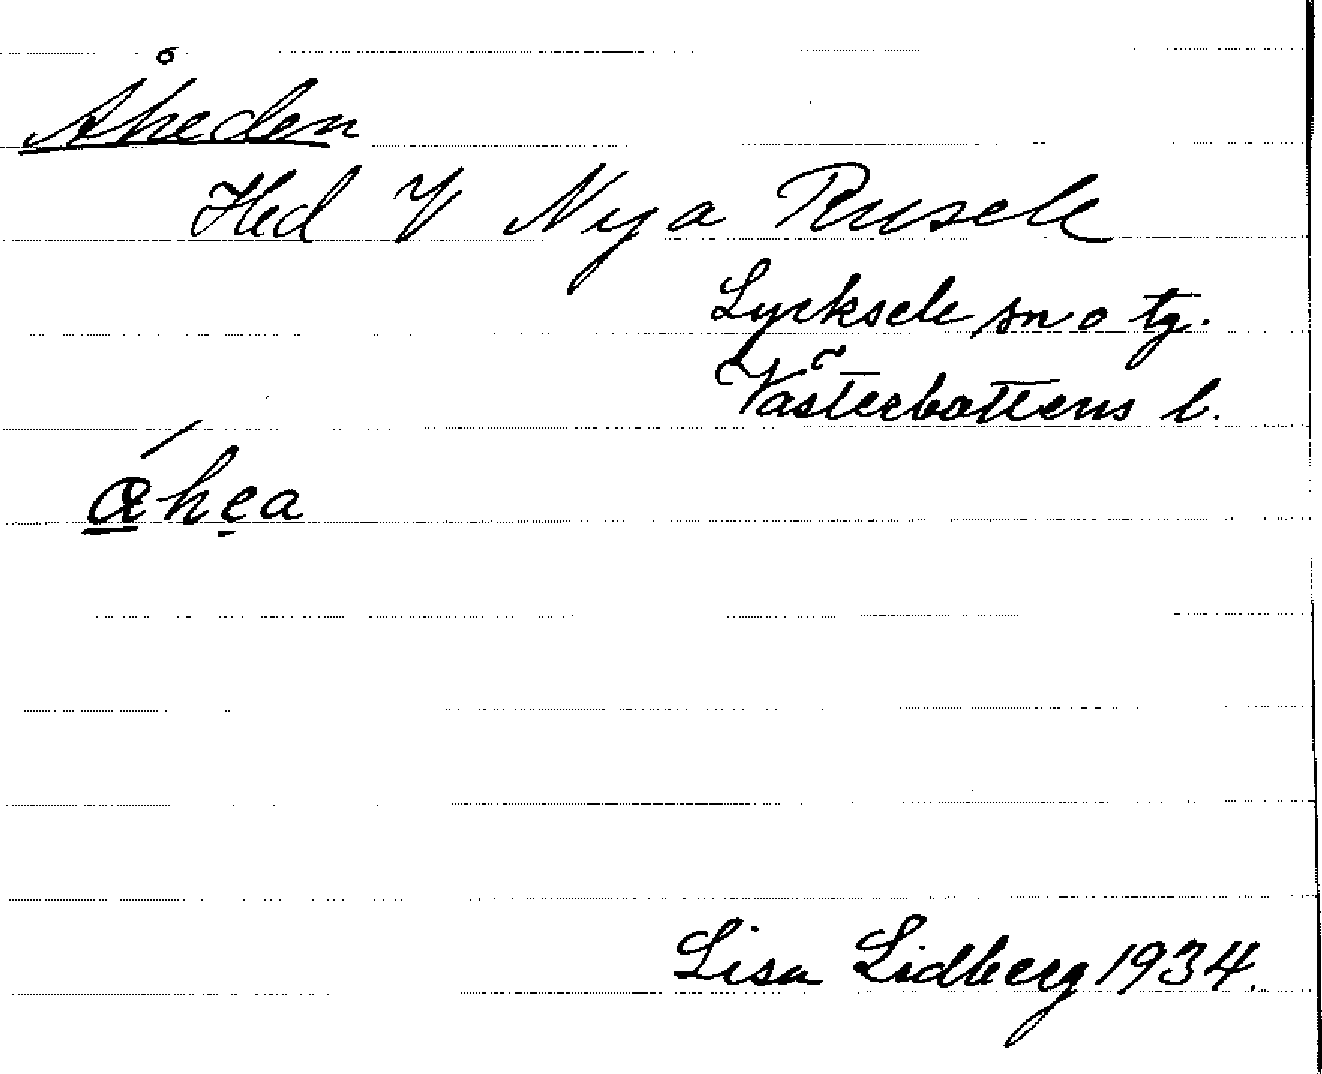 Åheden
Hed V Nya Rusele
Lycksele sn o tg.
Västerbottens l.
Lisa Lidberg 1934.